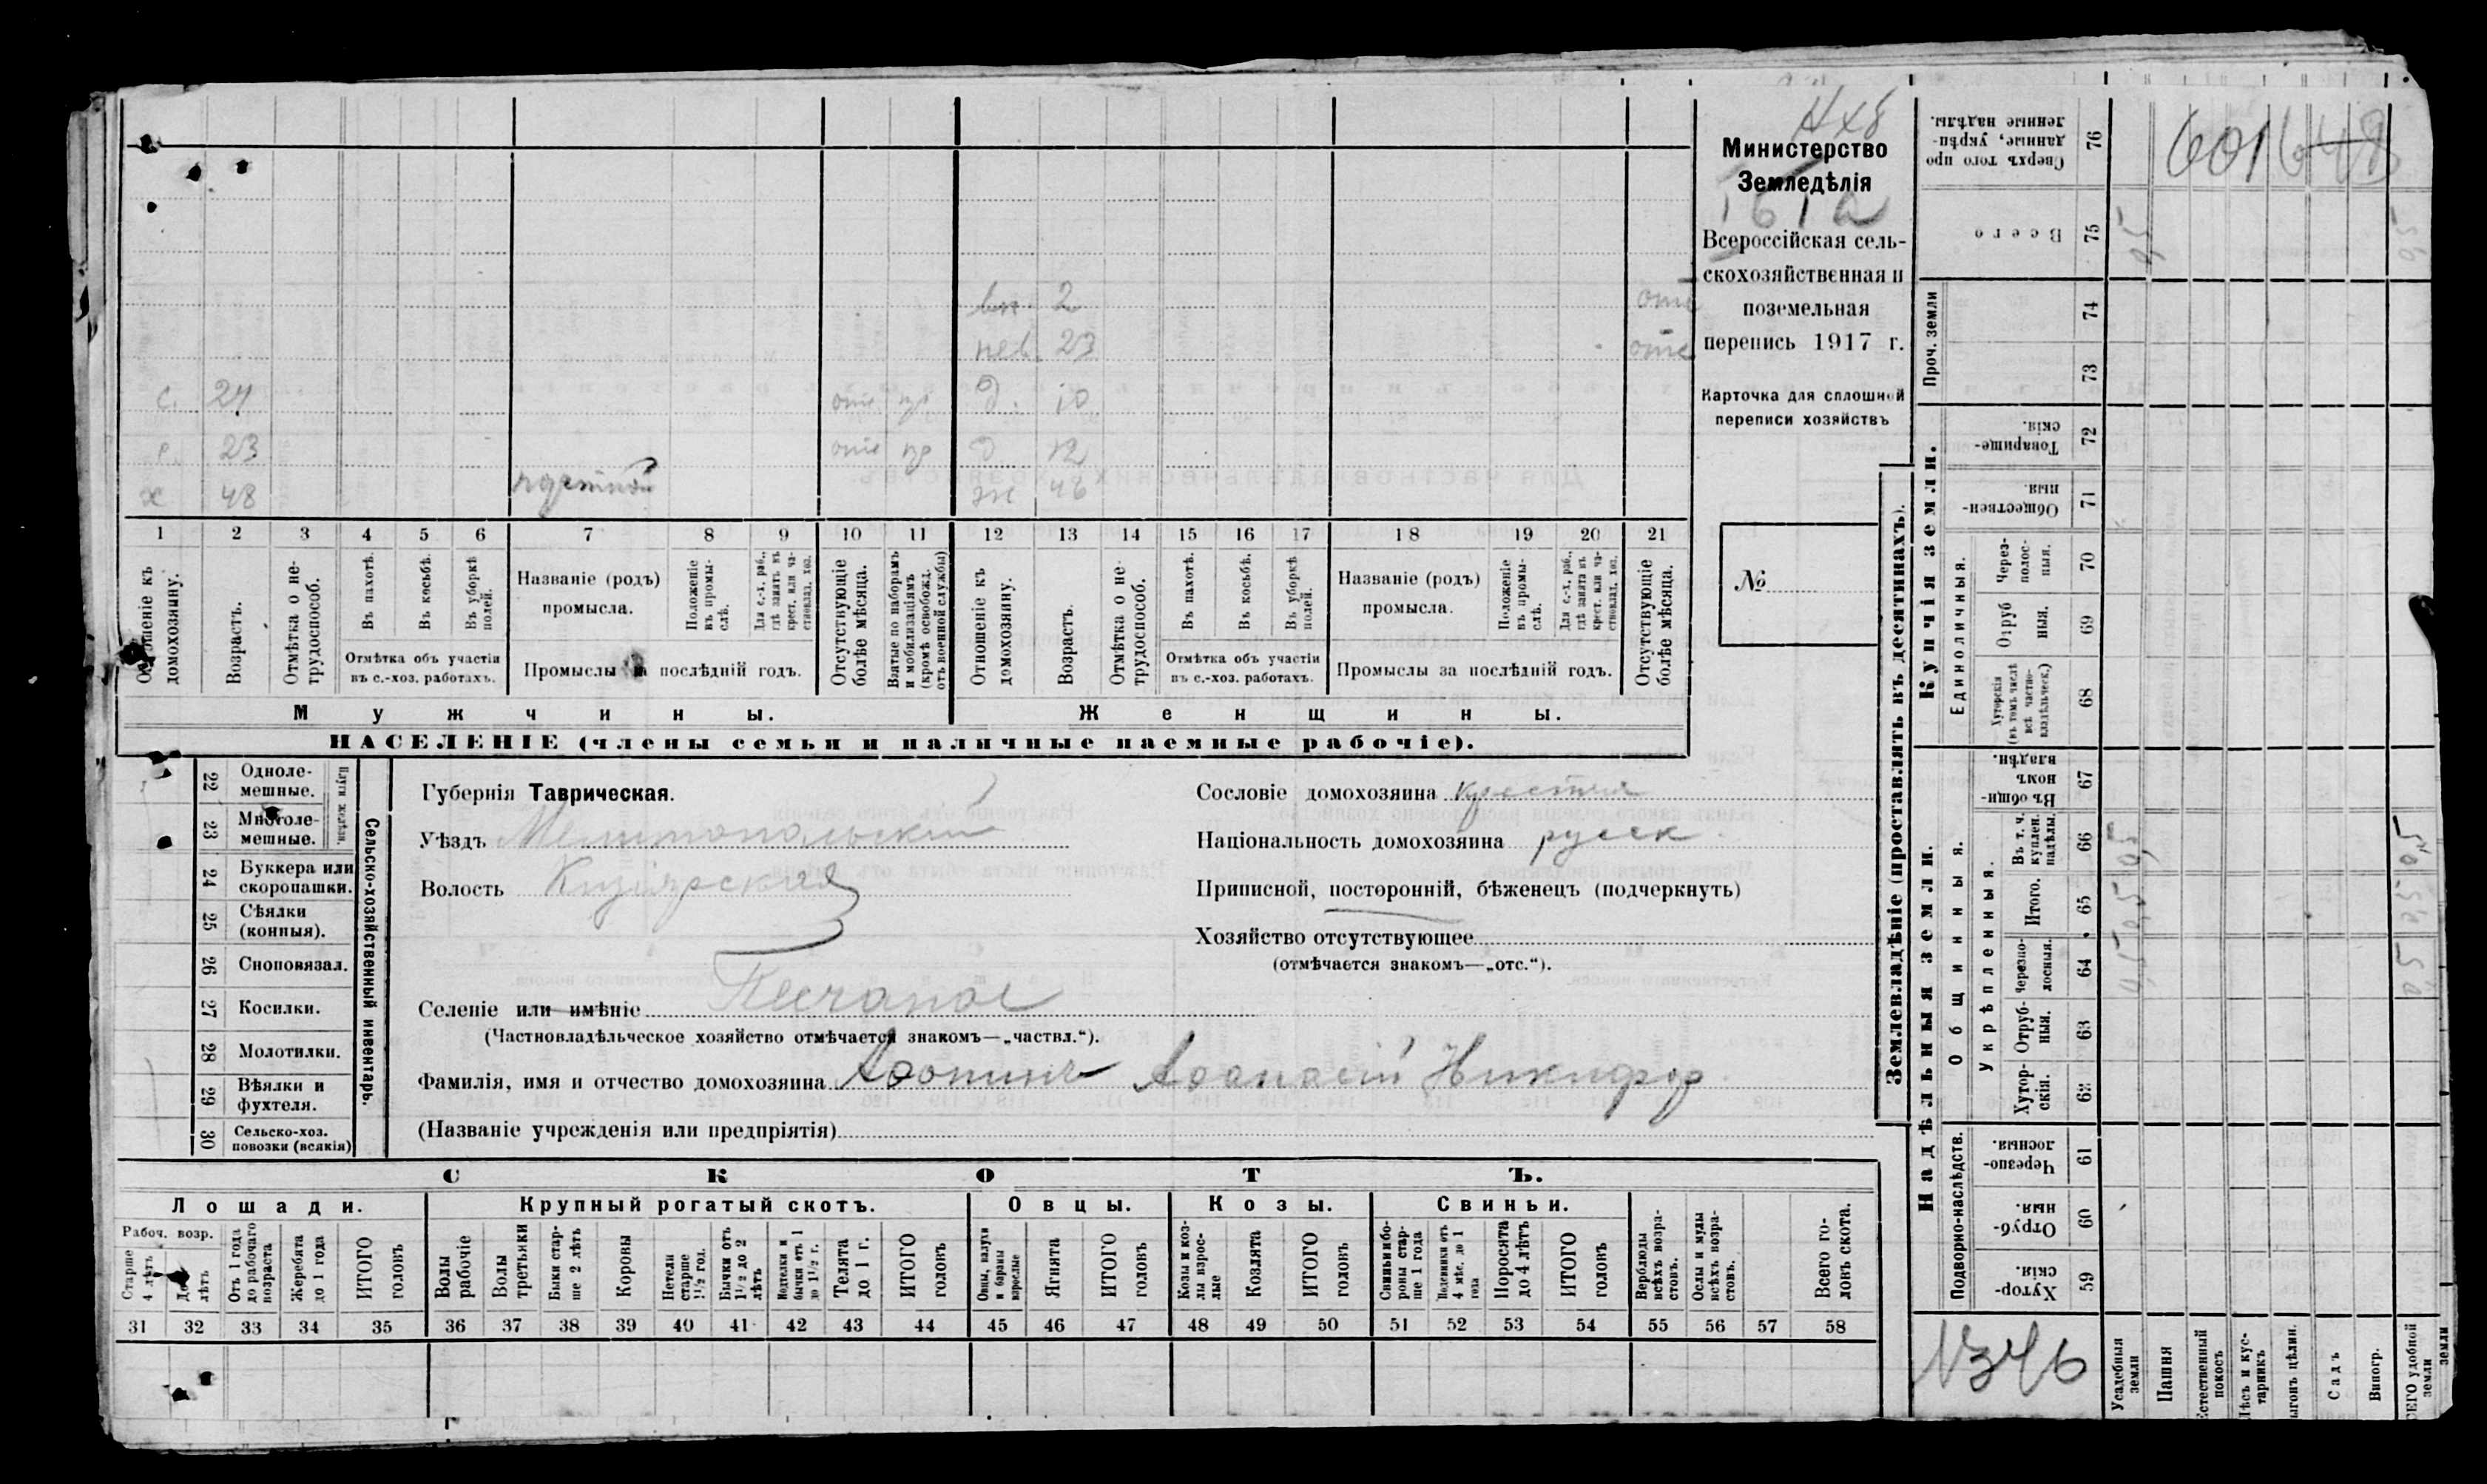 Министерство
Земледѣлія
Всероссійская сель-
скохозяйственная и
поземельная
перепись 1917 г.
Карточка для сплошной
переписи хозяйствъ
№
вн. 2 отс
нев. 23 отс
с. 24 отс пр д. 10
с. 23 отс пр д 12
х 48 ж 46
1 2 3 4 5 6 7 8 9 10 11 12 13 14 15 16 17 18 19 20 21
Отношеніе къ домохозяину.
Возрастъ.
Отмѣтка о не-
трудоспособ.
Въ пахотѣ.
Въ косьбѣ.
Въ уборкѣ
полей.
Отмѣтка объ участіи
въ с.-хоз. работахъ.
Названіе (родъ)
промысла.
Положеніе
въ промы-
слѣ.
Для с.-х. раб.,
гдѣ занятъ въ
крест. или ча-
стновлад. хоз.
Промыслы за послѣдній годъ.
Отсутствующіе
болѣе мѣсяца.
Взятые по наборамъ
и мобилизаціямъ
(кромѣ освобожд.
отъ военной службы)
Отношеніе къ
домохозяину.
Возрастъ.
Отмѣтка о не-
трудоспособ.
Въ пахотѣ.
Въ косьбѣ.
Въ уборкѣ
полей.
Отмѣтка объ участіи
въ с.-хоз. работахъ.
Названіе (родъ)
промысла.
Положеніе
въ промы-
слѣ.
Для с.-х. раб.,
гдѣ занята въ
крест. или ча-
стновлад. хоз.
Промыслы за послѣдній годъ.
Отсутствующіе
болѣе мѣсяца.
Мужчины.
Женщины.
НАСЕЛЕНІЕ (члены семьи и наличные наемные рабочіе).
22 Одноле-
мешные.
23 Многоле-
мешные.
Плуги желѣзн.
24 Буккера или
скоропашки.
25 Сѣялки
(конныя).
26 Сноповязал.
27 Косилки.
28 Молотилки.
29 Вѣялки и
фухтеля.
30 Сельско-хоз.
повозки (всякія)
Сельско-хозяйственный инвентарь.
Губернія Таврическая.
Уѣздъ Мелитопольский
Волость Кизіярская
Селеніе или имѣніе Песчаное
(Частновладѣльческое хозяйство отмѣчается знакомъ—„частвл.“).
Фамилія, имя и отчество домохозяина Афонинъ Афанасій Никифор
(Названіе учрежденія или предпріятія)
Сословіе домохозяина крестьян
Національность домохозяина русск
Приписной, посторонній, бѣженецъ (подчеркнуть)
Хозяйство отсутствующее
(отмѣчается знакомъ—„отс.“).
СКОТЪ.
Лошади.
Крупный рогатый скотъ.
Овцы.
Козы.
Свиньи.
Рабоч. возр.
Старше
4 лѣтъ
До 4
лѣтъ
Отъ 1 года
до рабочаго
возраста
Жеребята
до 1 года
ИТОГО
головъ
Волы
рабочіе
Волы
третьяки
Быки стар-
ше 2 лѣтъ
Коровы
Нетели
старше
1½ год.
Бычки отъ
1½ до 2
лѣтъ
Нетелки и
бычки отъ 1
до 1½ г.
Телята
до 1 г.
ИТОГО
головъ
Овцы, валухи
и бараны
взрослые
Ягнята
ИТОГО
головъ
Козы и коз-
лы взрос-
лые
Козлята
ИТОГО
головъ
Свиньи бо-
ровы стар-
ше 1 года
Подсвинки отъ
4 мѣс. до 1
года
Поросята
до 4 лѣтъ
ИТОГО
головъ
Верблюды
всѣхъ возра-
стовъ.
Ослы и мулы
всѣхъ возра-
стовъ.
Всего го-
ловъ скота.
31 32 33 34 35 36 37 38 39 40 41 42 43 44 45 46 47 48 49 50 51 52 53 54 55 56 57 58
Землевладѣніе (проставлять въ десятинахъ).
Сверхъ того про-
данные, укрѣп-
ленные надѣлы.
76
Всего
75
Проч. земли
74
73
Купчія земли.
Товарище-
скія.
72
Обществен-
ныя.
71
Единоличныя.
Через-
полос-
ныя.
70
Отруб
ныя.
69
Хуторскія
(въ томъ числѣ
всѣ частно-
владѣльческ.)
68
Надѣльныя земли.
Общинныя.
Въ общин-
номъ
владѣн.
67
Укрѣпленныя.
Въ т. ч.
куплен.
надѣлы.
66
Итого.
65
Черезпо-
лосныя.
64
Отруб-
ныя.
63
Хутор-
скія.
62
Подворно-наслѣдств.
Черезпо-
лосныя.
61
Отруб-
ныя.
60
Хутор-
скія.
59
N346
Усадебныя
земли
Пашня
Естественный
покосъ
Лѣсъ и кус-
тарникъ
Выгонъ цѣлин.
Садъ
Виногр.
ВСЕГО удобной
земли